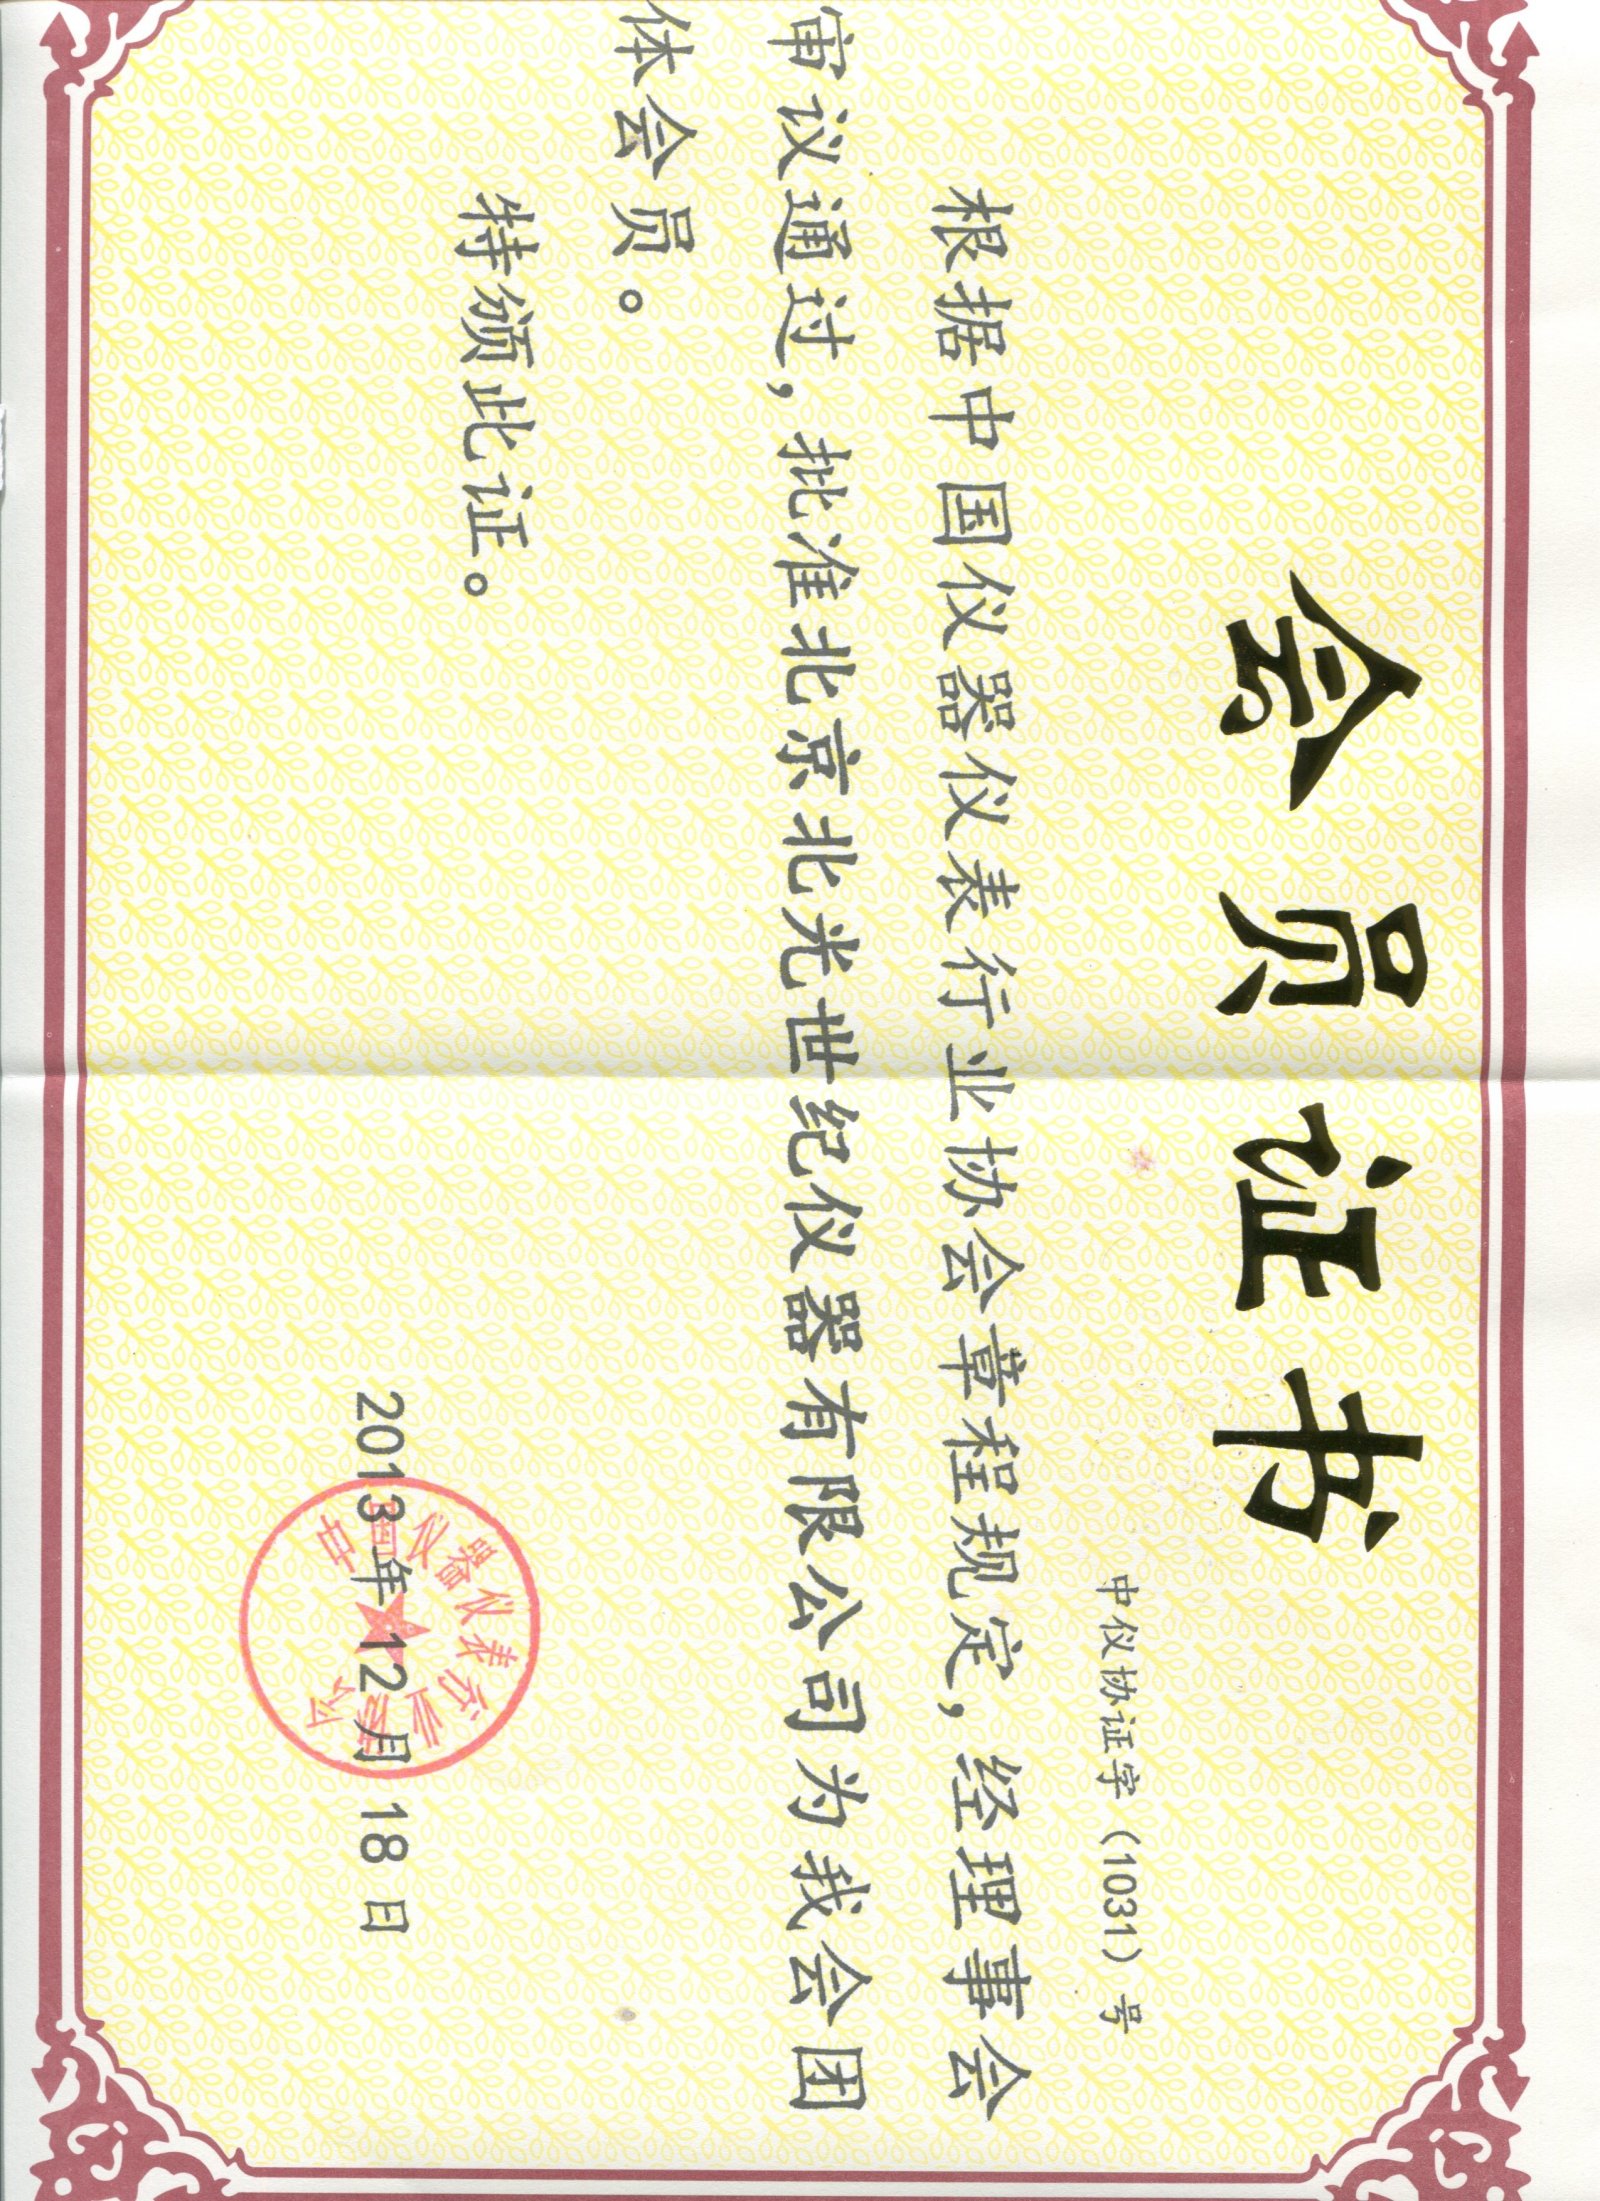 会员证书
中仪协证字（1031）号
根据中国仪器仪表行业协会章程规定，经理事会
审议通过，批准北京北光世纪仪器有限公司为我会团
体会员。
特颁此证。
2013年12月18日
中国仪器仪表行业协会